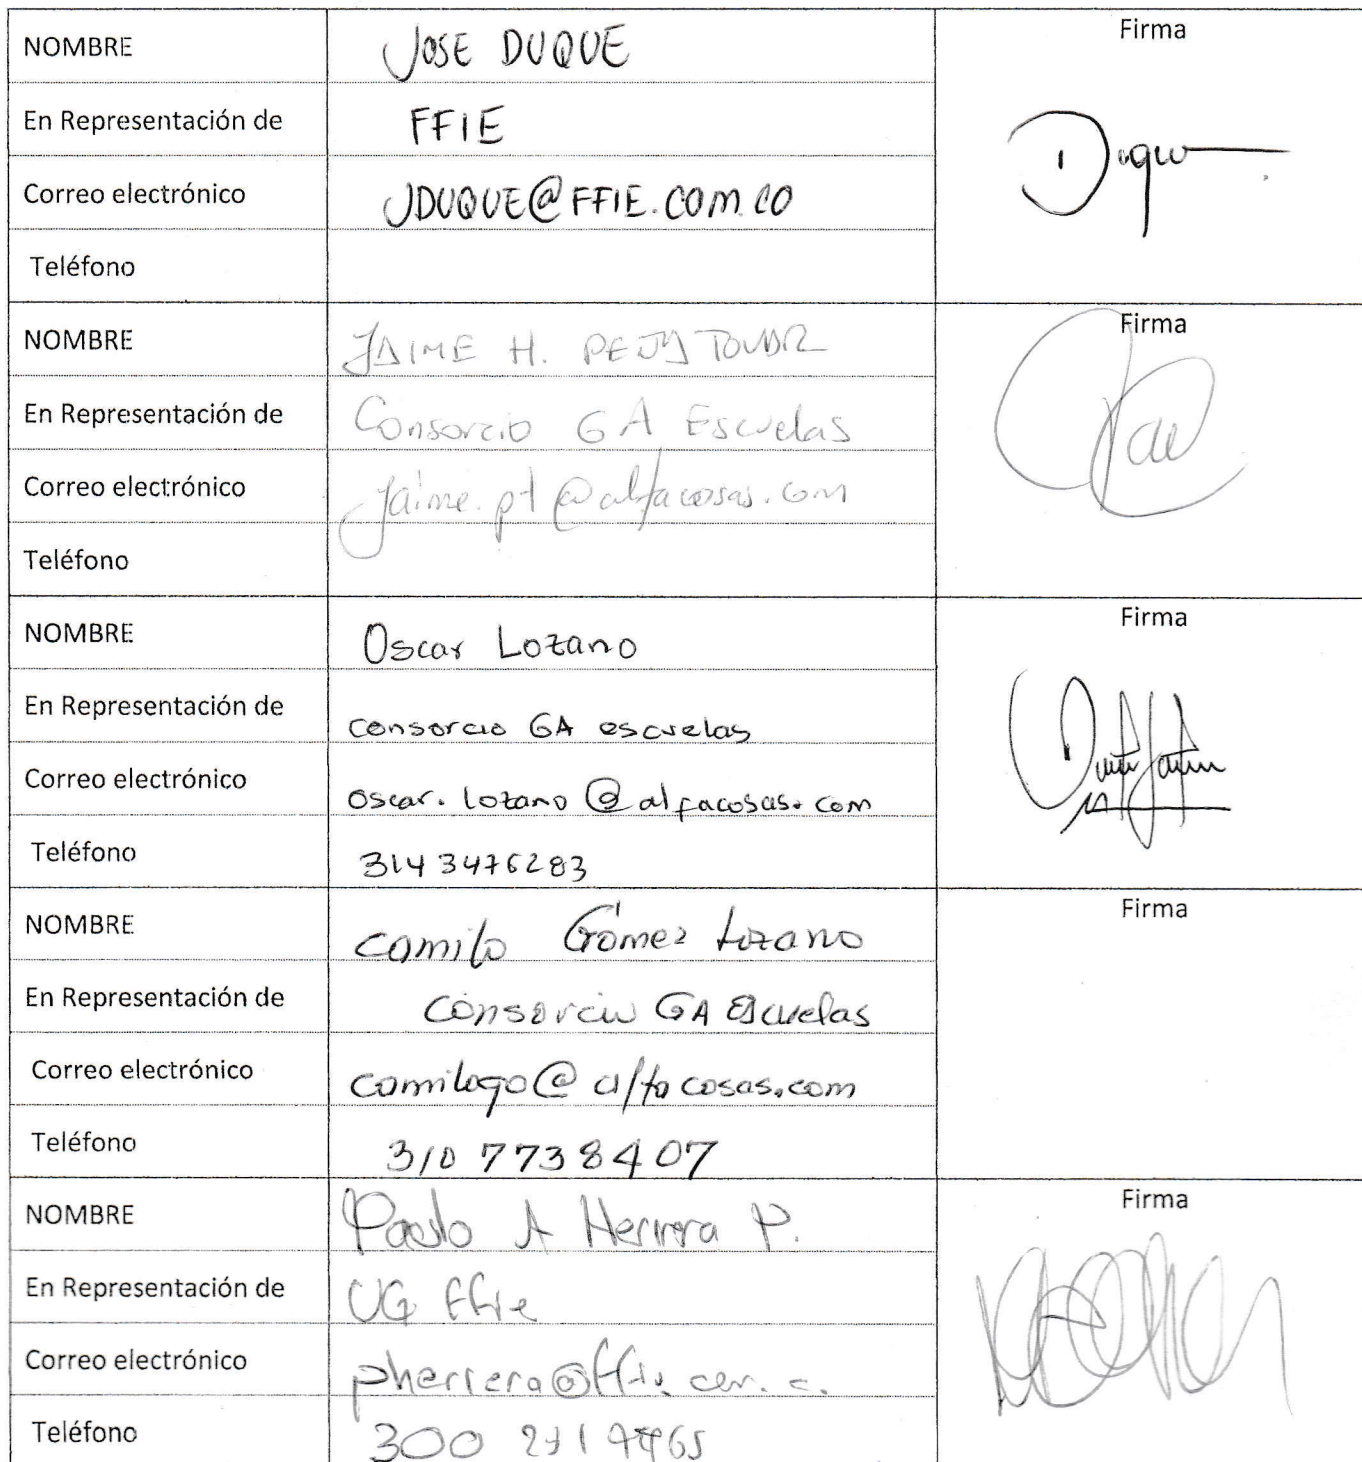 NOMBRE JOSE DUQUE Firma
En Representación de FFIE
Correo electrónico JDUQUE@FFIE.COM.CO Duque
Teléfono
NOMBRE JAIME H. PEÑA TOVAR Firma
En Representación de Consorcio GA Escuelas
Correo electrónico Jaime.pt@alfacosas.com
Teléfono
NOMBRE Oscar Lozano Firma
En Representación de consorcio GA escuelas
Correo electrónico oscar.lozano@alfacosas.com
Teléfono 3143476283
NOMBRE Camilo Gómez Lozano Firma
En Representación de Consorcio GA Escuelas
Correo electrónico camilogo@alfacosas.com
Teléfono 310 7738407
NOMBRE Paolo A Herrera P. Firma
En Representación de UG ffie
Correo electrónico pherrera@ffie.com.c.
Teléfono 300